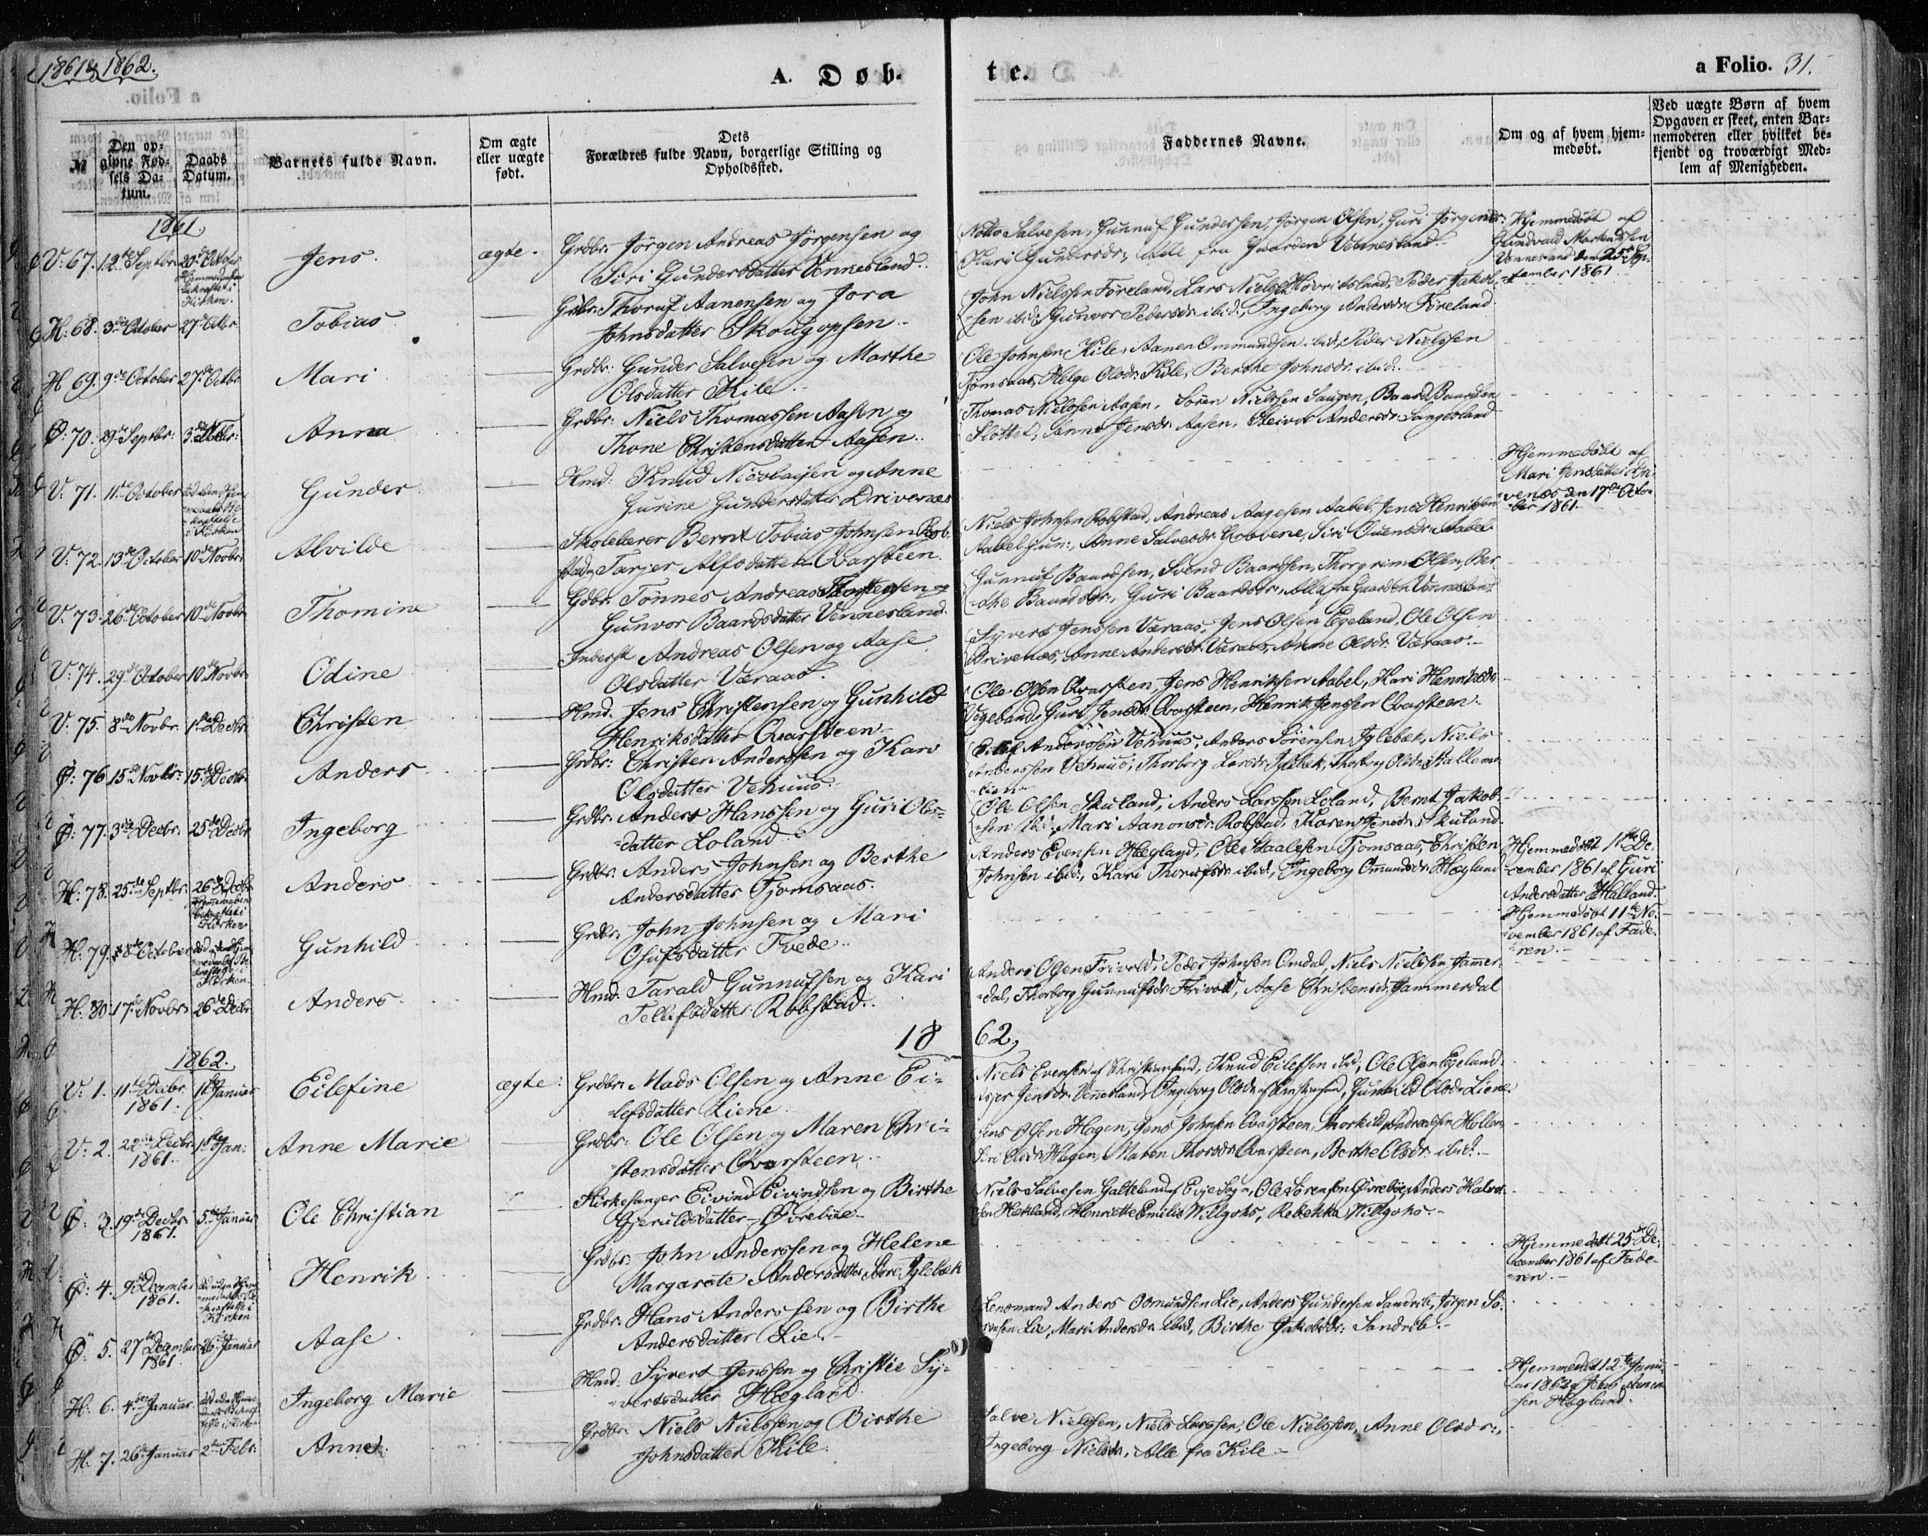 1861 & 1862.
A. Døb-
te.
a Folio. 31.
№
Den opgivne Fødsels Datum.
Daabs Datum.
Barnets fulde Navn.
Om ægte eller uægte født.
Dets Forældres fulde Navn, borgerlige Stilling og Opholdssted.
Faddernes Navne.
Om og af hvem hjemmedøbt.
Ved uægte Børn af hvem Opgaven er skeet, enten Barnemoderen eller hvilket bekjendt og troværdigt Medlem af Menigheden.
1861.
V. 67. 12te Septbr 20de October Jens ægte. Grdbr: Jørgen Andreas Jørgensen og
Siri Gundersdatter Vennesland.
Notto Salvesen, Gunnuf Gundersen, Jørgen Olsen, Guri Jørgensdr:
Kari Gundersdr:, Alle fra Gaarden Vennesland.
Hjemmedøbt af
Vennesland den 25de Sep-
tember 1861.
H. 68. 3die October 27de Octbr Tobias Grdbr: Thoruf Aanensen og Tora
Johnsdatter Skougopsen.
John Nielssen Føreland, Lars Nielssen ibid, Peder Jakob-
sen ibid, Gunvor Pedersdr ibid, Ingeborg Andersdr Føreland.
H 69. 9de October 27de Octbr Mari Grdbr: Gunder Salvesen og Marthe
Olsdatter Kile
Ole Johnsen Kile, Aanen Ommundsen ibid, Peder Nielssen
Tjomsaas, Helge Olsdr Kile, Berthe Johnsdr ibid.
Ø: 70. 29de Septbr: 3die Novbr: Anna Grdbr: Niels Thomassen Aasen og
Thone Christensdatter Aasen.
Thomas Nielssen Aasen, Søren Nielssen Haugen, Baard Baardsen
Slottet, Anne Jensdr Aasen, Oleivor Andersdr Langeland
V. 71. 11te October Gunder Hmd: Knud Nicolaisen og Anne
Gurine Gundersdatter Drivenes
Hjemmedøbt af
Mari Jensdatter Dri-
venæs den 17de Octo-
ber 1861.
V: 72. 13de October 10de Novbr Alvilde Skolelærer Bernt Tobias Johnsen Rob-
stad, Tarjer Alfsdatter Qvarsteen.
Niels Johnsen Robstad, Andreas Aagesen Aabel, Jens Henriksen
Aabel jun:, Anne Salvesdr Hobbene, Siri Evensdr Aabel
V: 73. 26de October 10de Novbr Thomine Grdbr: Tønnes Andreas Thorkelsen og
Gunvor Baardsdatter Vennesland.
Gunnuf Baardsen, Svend Baardsen, Thorgrim Olsen, Ber-
the Baardsdr, Guri Baardsdr, Alle fra Gaarden Vennesland.
V: 74. 29de October 10de Novbr Odine Inderst Andreas Olsen og Aase
Olsdatter Væraas.
Syvert Jenssen Væraas, Jens Olsen Egeland, Ole Olsen
Drivenæs, Anne Andersdr Væraas, Anne Olsdr Væraas.
V: 75. 8de Novbr 1ste Decbr Christen Hmd. Jens Christensen og Gunhild
Henriksdatter Qvarsteen
Ole Olsen Qvarsteen, Jens Henriksen Aabel, Kari Henriksdr
Vigeland, Guri Jensdr Qvarsteen, Henrik Jenssen Qvarsteen.
Ø: 76 15de Novbr: 15de Decbr Anders Grdbr: Christen Anderssen og Kari
Olsdatter Vehuus.
Anderssen Vehuus, Anders Sørensen Iglebæk, Niels
Anderssen Vehuus, Thorborg Larsdr Iglebæk, Thorborg Olsdr Stallems-
Ø: 77. 3die Decbr. 25de Decbr Ingeborg Grdbr: Anders Hanssen og Guri Ols-
datter Loland.
Ole Olsen Skuland, Anders Larssen Loland, Bernt Jakob-
sen ibid, Mari Aanonsdr Robstad, Karen Jensdr Skuland.
H: 78. 25de Septbr. 26de Decbr Anders Grdbr: Anders Johnsen og Berthe
Andersdatter Tjomsaas.
Anders Evensen Hægland, Ole Staalesen Tjomsaas, Christen
Johnsen ibid, Kari Thorufsdr ibid, Ingeborg Omundsdr Hægland
Hjemmedøbt 1ste De-
cember 1861 af Guri
Andersdatter Halland.
H: 79. 8de October Gunhild Grdbr: John Johnsen og Mari
Osufsdatter Tvede.
Hjemmedøbt 11te No-
vember 1861 af Fade-
ren.
H: 80. 17de Novbr 26de Decbr Anders Hmd: Tarald Gunnufsen og Kari
Tellefsdatter Robstad.
Anders Olsen Frivold, Peder Johnsen Omdal, Niels Nielssen Jammer-
dal, Thorborg Gunnufsdr Frivold, Aase Christensdr Jammerdal
1862.
18 62,
V: 1. 11te Decbr 1861. Januar Eilefine ægte: Grdbr: Mads Olsen og Anne Ei-
lefsdatter Liene.
Niels Evensen af Christiansand, Knud Eilefsen ibid, Ole Olsen Egeland.
Jensdr Vennesland, Ingeborg Olsdr af Christiansand, Gunhild Olsdr Liene
V: 2. 22de Decbr 1861. Jan: Anne Marie Grdbr: Ole Olsen og Maren Chri-
stensdatter Qvarsteen.
Jens Olsen Hagen, Jens Johnsen Qvarsteen, Thorkild Andreassen Hollen
Siri Olsdr Hagen, Maren Thorsdr Qvarsteen, Berthe Olsdr ibid.
Ø: 3. 19de Decbr 1861. 5te Januar Ole Christian Kirkesanger Eivind Eivindsen og Birthe
Gjeruldsdatter Øvrebøe
Niels Salvesen Galteland af Evje Sogn, Ole Sørensen Øvrebøe, Anders Halvor-
sen Hekland, Henriette Emilie Willgohs, Rebekka Willgohs.
Ø: 4. 9de December 1861. Henrik Grdbr: John Anderssen og Helene
Margarete Andersdatter Iglebæk
Hjemmedøbt 25de De-
cember 1861 af Fade-
ren.
Ø: 5. 27de December 1861 26de Januar Aase Grdbr: Hans Anderssen og Birthe
Andersdatter Lie
Lensmand Anders Osmundsen Lie, Anders Gundersen Sandrib, Jørgen Sø-
rensen Lie, Mari Andersdr ibid, Birthe Jakobsdr: Sandrib
H: 6. 4de Januar Ingeborg Marie Hmd: Syvert Jenssen og Christie Sy-
vertsdatter Hægland.
Hjemmedøbt 12te Janu-
ar 1862 af Jens Aanen-
sen Hægland.
H. 7. 26de Januar 2den Febr: Anne Grdbr: Niels Nielssen og Birthe
Johnsdatter Kile.
Salve Nielssen, Niels Larssen, Ole Nielssen, Anne Olsdr:,
Ingeborg Nielsdr, Alle fra Kile